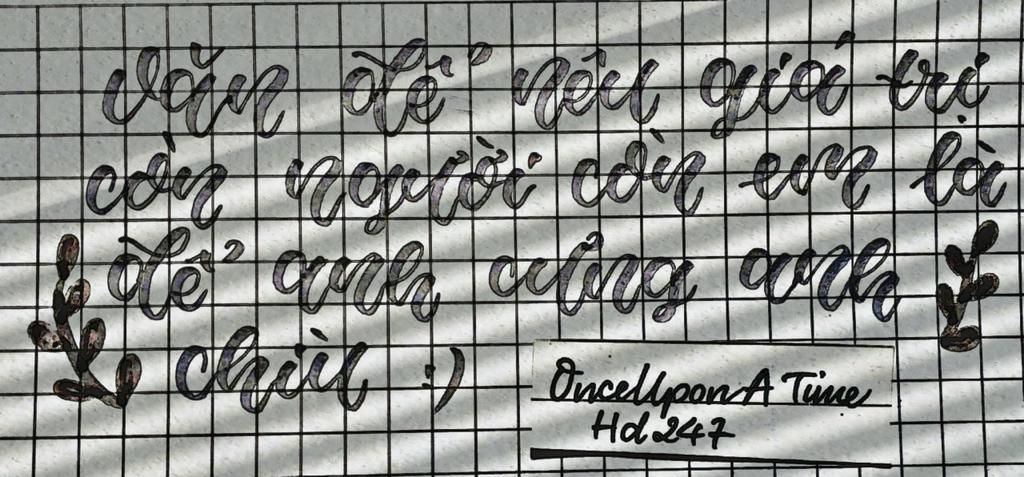 văn để nêu giá trị
còn người còn em là
để anh cưng anh
chìu :)
OnceUpon A Time
Hd 247